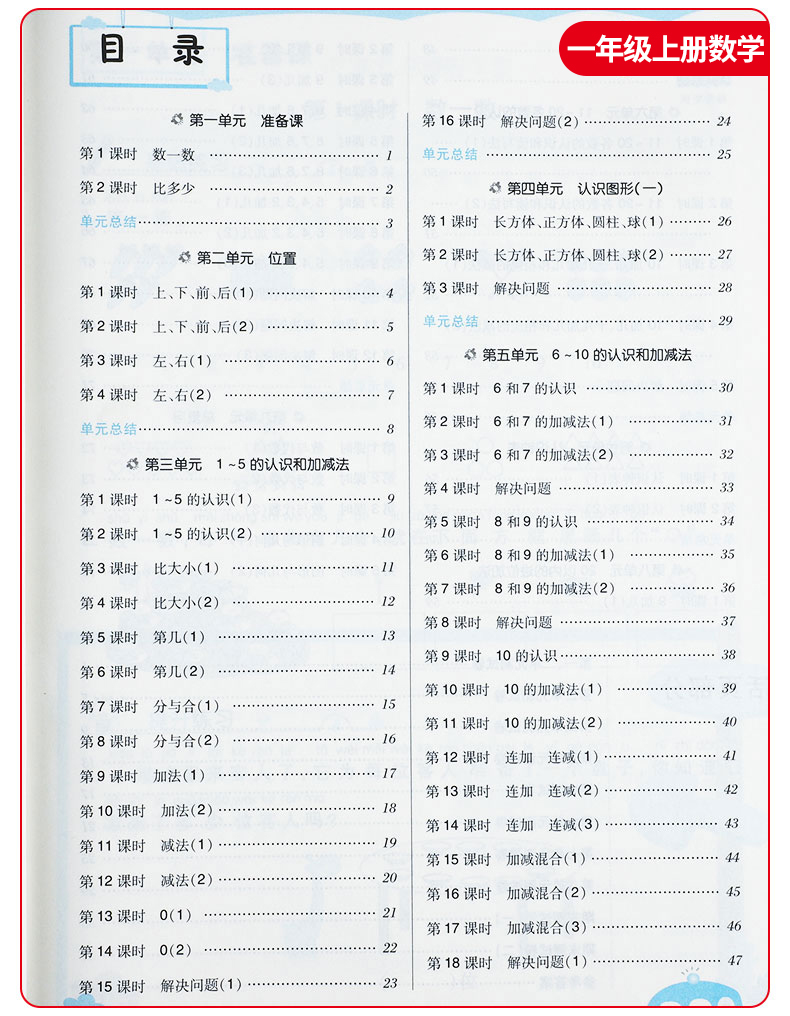 目 录
一年级上册数学
第一单元 准备课
第1课时 数一数 1
第2课时 比多少 2
单元总结 3
第二单元 位置
第1课时 上、下、前、后(1) 4
第2课时 上、下、前、后(2) 5
第3课时 左、右(1) 6
第4课时 左、右(2) 7
单元总结 8
第三单元 1~5的认识和加减法
第1课时 1~5的认识(1) 9
第2课时 1~5的认识(2) 10
第3课时 比大小(1) 11
第4课时 比大小(2) 12
第5课时 第几(1) 13
第6课时 第几(2) 14
第7课时 分与合(1) 15
第8课时 分与合(2) 16
第9课时 加法(1) 17
第10课时 加法(2) 18
第11课时 减法(1) 19
第12课时 减法(2) 20
第13课时 0(1) 21
第14课时 0(2) 22
第15课时 解决问题(1) 23
第16课时 解决问题(2) 24
单元总结 25
第四单元 认识图形(一)
第1课时 长方体、正方体、圆柱、球(1) 26
第2课时 长方体、正方体、圆柱、球(2) 27
第3课时 解决问题 28
单元总结 29
第五单元 6~10的认识和加减法
第1课时 6和7的认识 30
第2课时 6和7的加减法(1) 31
第3课时 6和7的加减法(2) 32
第4课时 解决问题 33
第5课时 8和9的认识 34
第6课时 8和9的加减法(1) 35
第7课时 8和9的加减法(2) 36
第8课时 解决问题 37
第9课时 10的认识 38
第10课时 10的加减法(1) 39
第11课时 10的加减法(2) 40
第12课时 连加 连减(1) 41
第13课时 连加 连减(2) 42
第14课时 连加 连减(3) 43
第15课时 加减混合(1) 44
第16课时 加减混合(2) 45
第17课时 加减混合(3) 46
第18课时 解决问题(1) 47